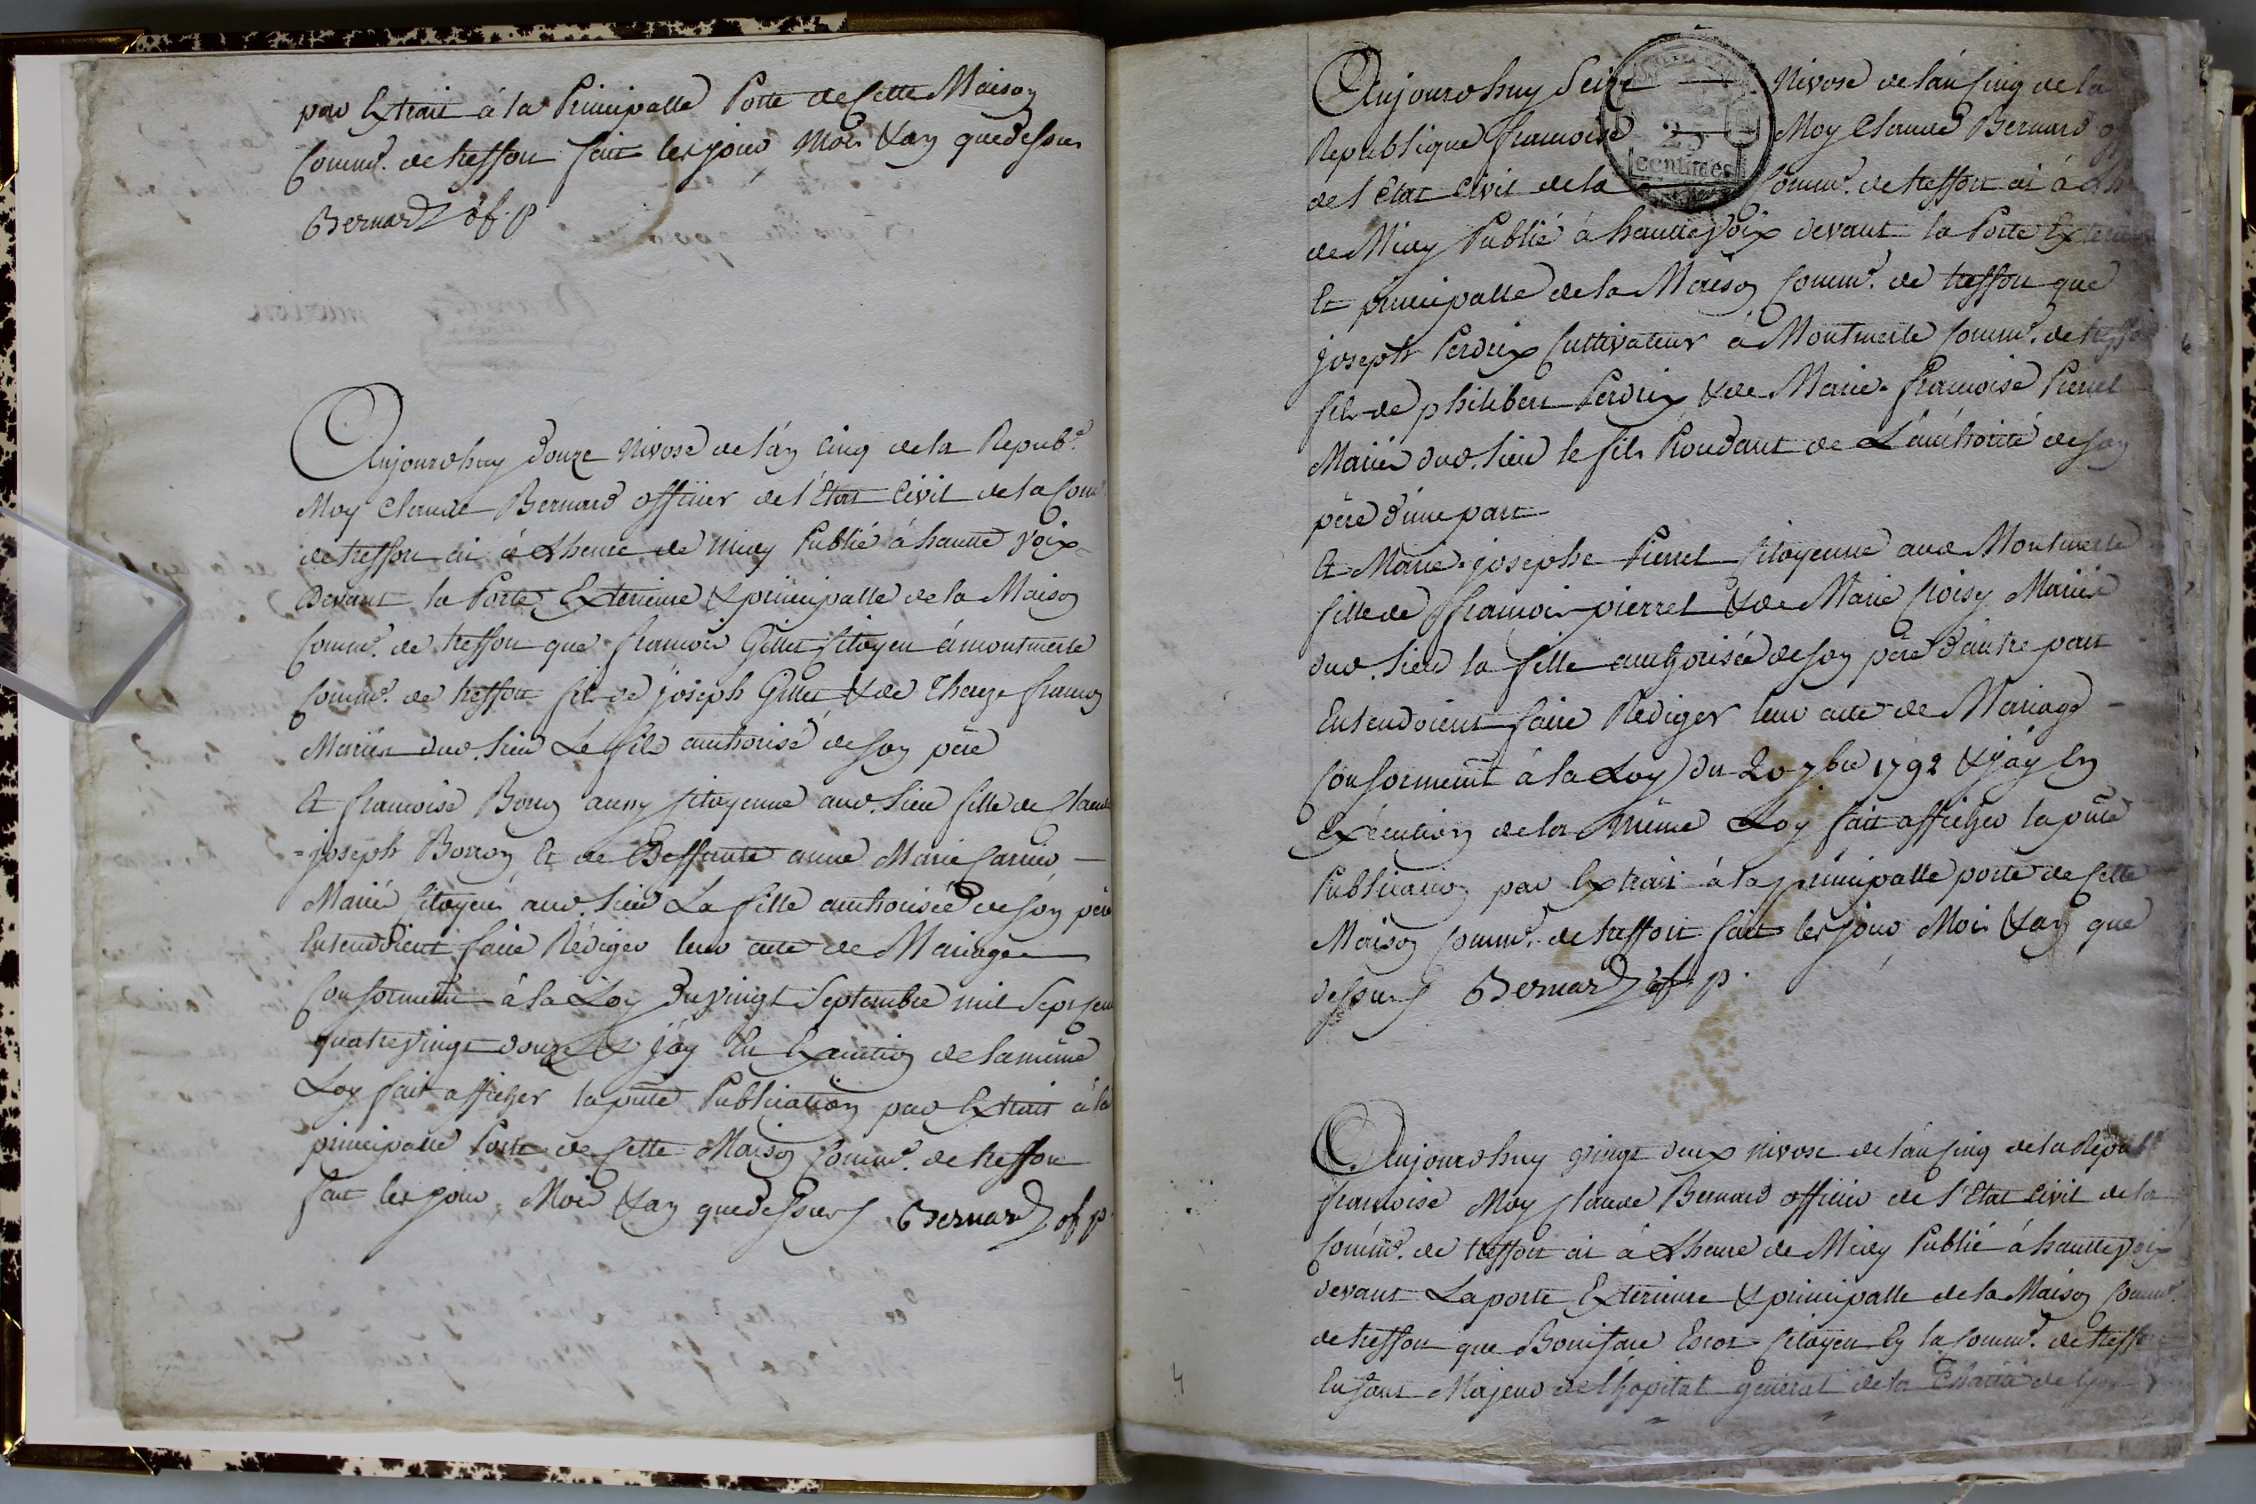 par Extrait á la Principalle Porte de Cette Maison
Commᵉ. de treffort fait les jour Mois & an que dessus
Bernard of. p
Aujourdhuy Douze Nivose de l'an Cinq de la Repubᵉ.
Moy Claude Bernard officier de l'Etat Civil de la Comᵉ
de treffort ai á Lheure de Midy Publié á hautte voix
Devant la Porte Exterieure & principalle de la Maison
Commᵉ. de treffort que francois Gillet Citoyen á montmerle
Commᵉ. de treffort fils de joseph Gillet & de francois
Mariés dud. lieu Le fils authorisé de son pere
Et francoise aussy Citoyenne aud. lieu fille de Claude
joseph Borron Et de Deffunte anne Marie
Mariés Citoyens aud. lieu La fille authorisée de son pere
Entendoient faire Rédiger leur acte de Mariage
Conformemt á la Loy Du vingt Septembre mil Sept Cent
quatrevingt douze & j'ay En Execution de la même
Loy fait afficher la pnte Publication par Extrait á la
principalle Porte de Cette Maison Commᵉ. de treffort
fait les jour Mois & an que dessus Bernard of p.
Aujourdhuy Seize Nivose de l'an Cinq de la
Republique francoise Moy Claude Bernard of
de l'Etat Civil de la Commᵉ. de treffort ai á
de Midy Publié á hautte voix devant la Porte Exterieure
Et principalle de la Maison Commᵉ. de treffort que
joseph Perdrix Cultivateur á Montmerle Commᵉ. de treffort
fils de philibert Perdrix & de Marie francoise Pierrel
Mariés dud. lieu le fils Proudant de L'authorité de son
pere d'une part
Et Marie josephe Pierrel Citoyenne aud Montmerle
fille de francois pierrel & de Marie Mariés
dud. lieu la fille authorisée de son pere d'autre part
Entendoient faire Rediger leur acte de Mariage
Conformemt á la Loy du 20 7bre 1792 & j'ay En
Execution de la même Loy fait afficher la pnte
Publication par Extrait á la principalle porte de Cette
Maison Commᵉ. de treffort fait les jour Mois & an que
dessus Bernard of. p.
25
centimes
Aujourdhuy vingt deux nivose de l'an Cinq de la Republ
francoise Moy Claude Bernard officier de l'Etat Civil de la
Commᵉ. de treffort ai á Lheure de Midy Publié á haulte voix
devant La porte Exterieure & principalle de la Maison Commᵉ.
de treffort que Boniface Citoyen En la Commᵉ. de treffort
Enfant Majeur de l'hopital general de la Charité de Lyon